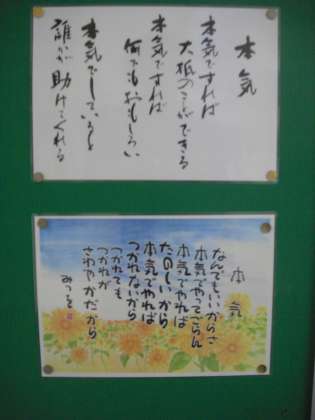 本気
本気ですれば
大抵のことができる
本気ですれば
何でもおもしろい
本気でしていると
誰かが助けてくれる
本気
なんでもいいからさ
本気でやってごらん
本気でやれば
たのしいから
本気でやれば
つかれないから
つかれても
つかれが
さわやかだから
みつを